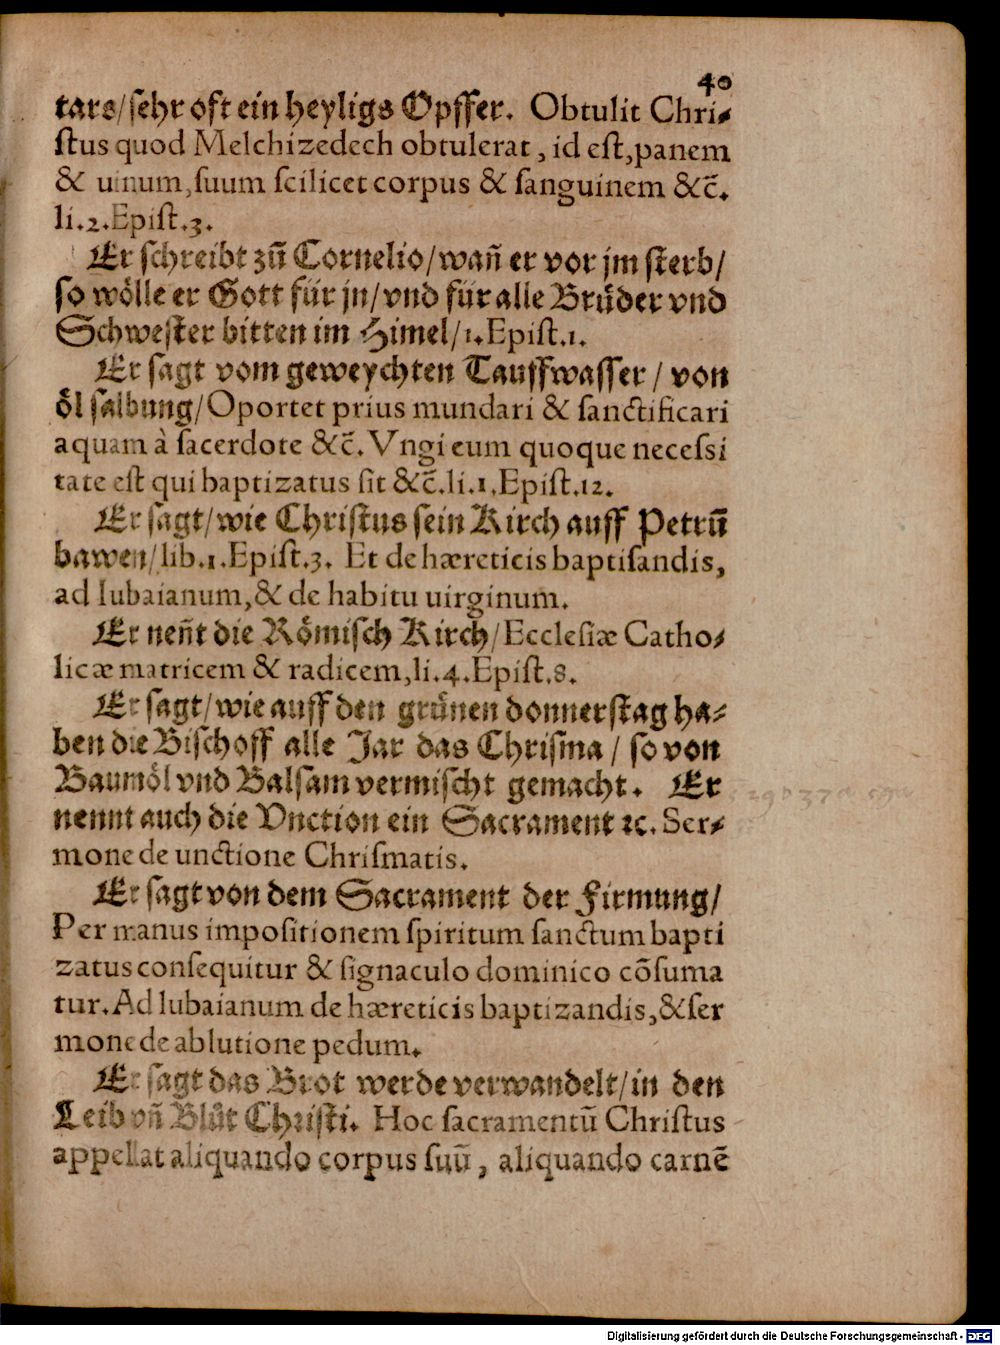 40
tars/ſehr oft ein heyligs Opffer. Obtulit Chri⸗
ſtus quod Melchizedech obtulerat, id eſt, panem
& uinum, ſuum ſcilicet corpus & ſanguinem &c̃.
li.2.Epiſt.3.
Er ſchreibt zů Cornelio/wañ er vor jm ſterb/
ſo wölle er Gott für jn/vnd für alle Brůder vnd
Schweſter bitten im Himel/1.Epiſt.1.
Er ſagt vom geweychten Tauffwaſſer/von
öl ſalbung/Oportet prius mundari & ſanctificari
aquam à ſacerdote &c̃. Vngi eum quoque neceſſi
tate eſt qui baptizatus ſit &c̃.li.1.Epiſt.12.
Er ſagt/wie Chriſtus ſein Kirch auff Petrū
bawen/lib.1.Epiſt.3. Et de hæreticis baptiſandis,
ad Iubaianum,& de habitu uirginum.
Er neñt die Römiſch Kirch/Eccleſiæ Catho⸗
licæ matricem & radicem,li.4.Epiſt.8.
Er ſagt/wie auff den grůnen donnerſtag ha⸗
ben die Biſchoff alle Jar das Chriſma/ſo von
Baumöl vnd Balſam vermiſcht gemacht. Er
nennt auch die Vnction ein Sacrament ꝛc. Ser⸗
mone de unctione Chriſmatis.
Er ſagt von dem Sacrament der Firmung/
Per manus impoſitionem ſpiritum ſanctum bapti
zatus conſequitur & ſignaculo dominico cōſuma
tur. Ad Iubaianum de hæreticis baptizandis,& ſer
mone de ablutione pedum.
Er ſagt das Brot werde verwandelt/in den
Leib vñ Blůt Chriſti. Hoc ſacramentū Chriſtus
appellat aliquando corpus ſuū, aliquando carnē
Digitalisierung gefördert durch die Deutsche Forschungsgemeinschaft - DFG